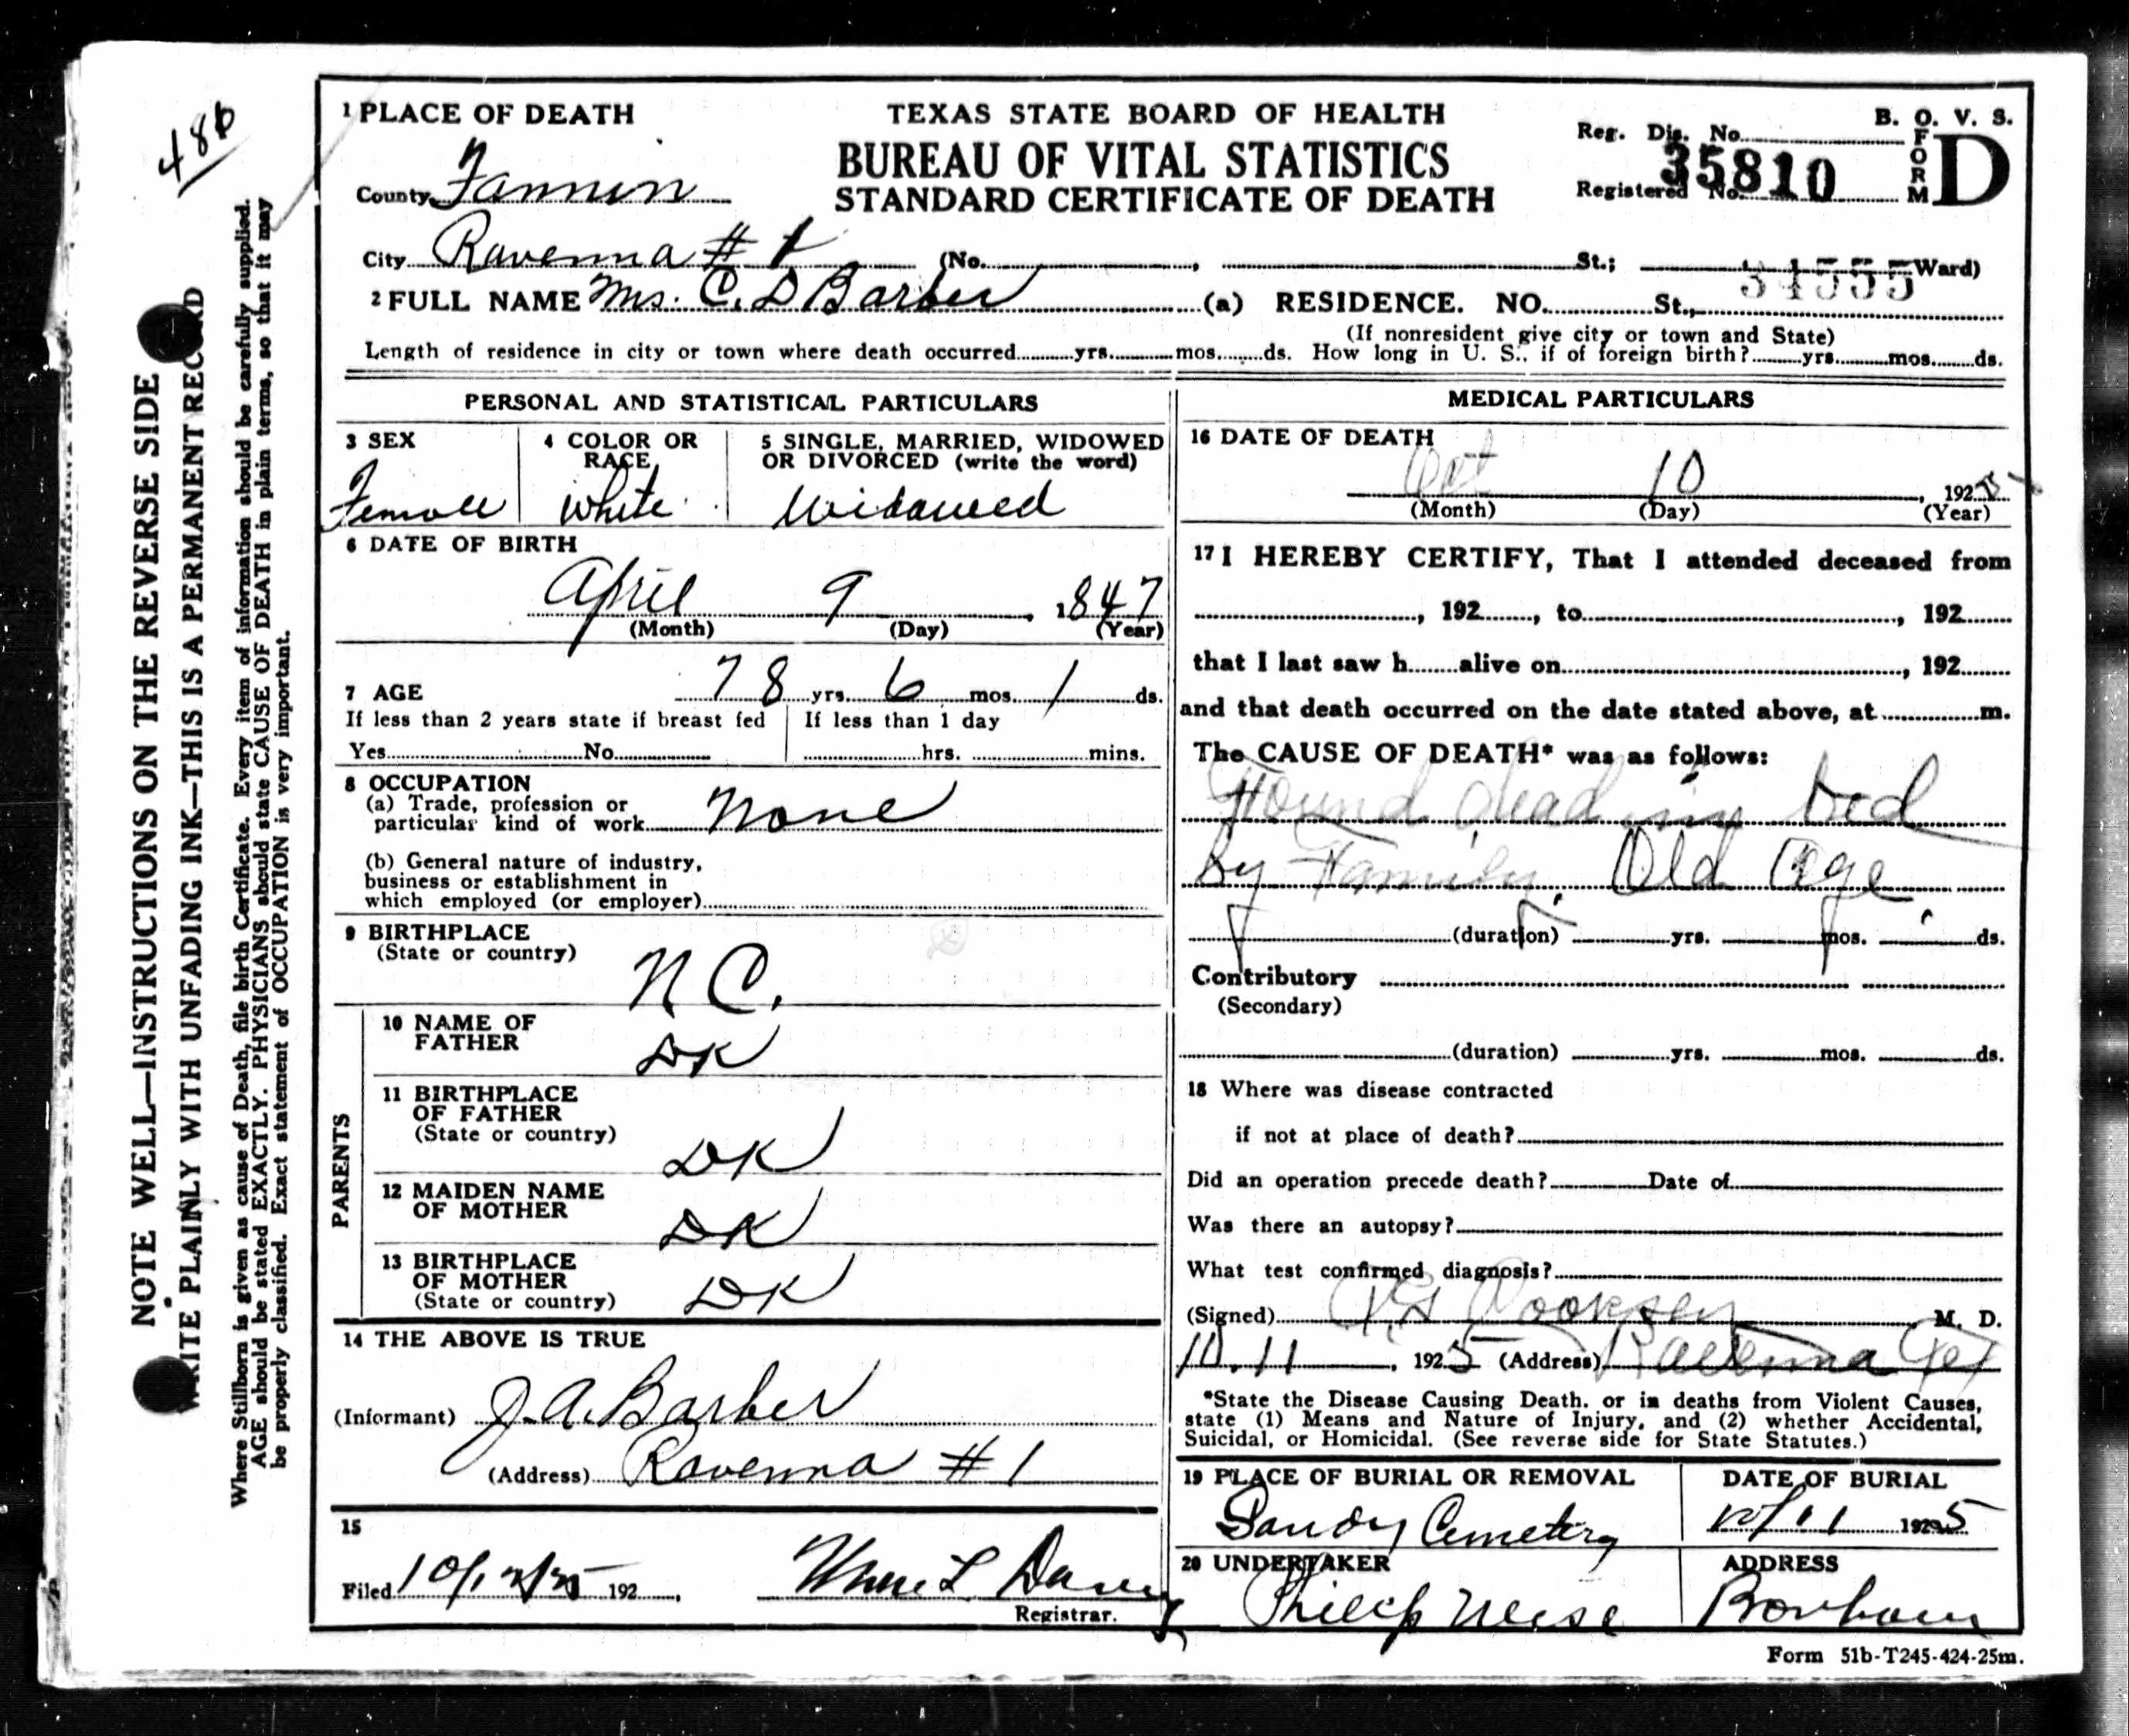 486
NOTE WELL—INSTRUCTIONS ON THE REVERSE SIDE
WRITE PLAINLY WITH UNFADING INK—THIS IS A PERMANENT RECORD
Where Stillborn is given as cause of Death, file birth Certificate. Every item of information should be carefully supplied.
AGE should be stated EXACTLY. PHYSICIANS should state CAUSE OF DEATH in plain terms, so that it may
be properly classified. Exact statement of OCCUPATION is very important.
1 PLACE OF DEATH
County Fannin
TEXAS STATE BOARD OF HEALTH
BUREAU OF VITAL STATISTICS
STANDARD CERTIFICATE OF DEATH
B. O. V. S.
FORM D
Reg. Dis. No.
Registered No. 35810
City Ravenna # 1 (No. , St.; Ward)
34555
2 FULL NAME Mrs. C. D Barber (a) RESIDENCE. NO. St.,
(If nonresident give city or town and State)
Length of residence in city or town where death occurred yrs. mos. ds. How long in U. S., if of foreign birth? yrs. mos. ds.
PERSONAL AND STATISTICAL PARTICULARS
3 SEX
Female
4 COLOR OR RACE
White
5 SINGLE, MARRIED, WIDOWED
OR DIVORCED (write the word)
Widowed
6 DATE OF BIRTH
April 9, 1847
(Month) (Day) (Year)
7 AGE 78 yrs. 6 mos. 1 ds.
If less than 2 years state if breast fed
Yes No
If less than 1 day
hrs. mins.
8 OCCUPATION
(a) Trade, profession or
particular kind of work None
(b) General nature of industry,
business or establishment in
which employed (or employer)
9 BIRTHPLACE
(State or country) N C.
PARENTS
10 NAME OF
FATHER DK
11 BIRTHPLACE
OF FATHER
(State or country) DK
12 MAIDEN NAME
OF MOTHER DK
13 BIRTHPLACE
OF MOTHER
(State or country) DK
14 THE ABOVE IS TRUE
(Informant) J. A. Barber
(Address) Ravenna # 1
15
Filed 10/12/25 192 ,
Registrar.
MEDICAL PARTICULARS
16 DATE OF DEATH
Oct 10, 1925
(Month) (Day) (Year)
17 I HEREBY CERTIFY, That I attended deceased from
, 192 , to , 192
that I last saw h alive on , 192
and that death occurred on the date stated above, at m.
The CAUSE OF DEATH* was as follows:
Found dead in bed
by Family. Old Age
(duration) yrs. mos. ds.
Contributory
(Secondary)
(duration) yrs. mos. ds.
18 Where was disease contracted
if not at place of death?
Did an operation precede death? Date of
Was there an autopsy?
What test confirmed diagnosis?
(Signed) Cooksey, M. D.
10.11, 1925 (Address) Ravenna Tex
*State the Disease Causing Death, or in deaths from Violent Causes,
state (1) Means and Nature of Injury, and (2) whether Accidental,
Suicidal, or Homicidal. (See reverse side for State Statutes.)
19 PLACE OF BURIAL OR REMOVAL
Sandy Cemetery
DATE OF BURIAL
10/11 1925
20 UNDERTAKER
Philip Neise
ADDRESS
Bonham
Form 51b-T245-424-25m.